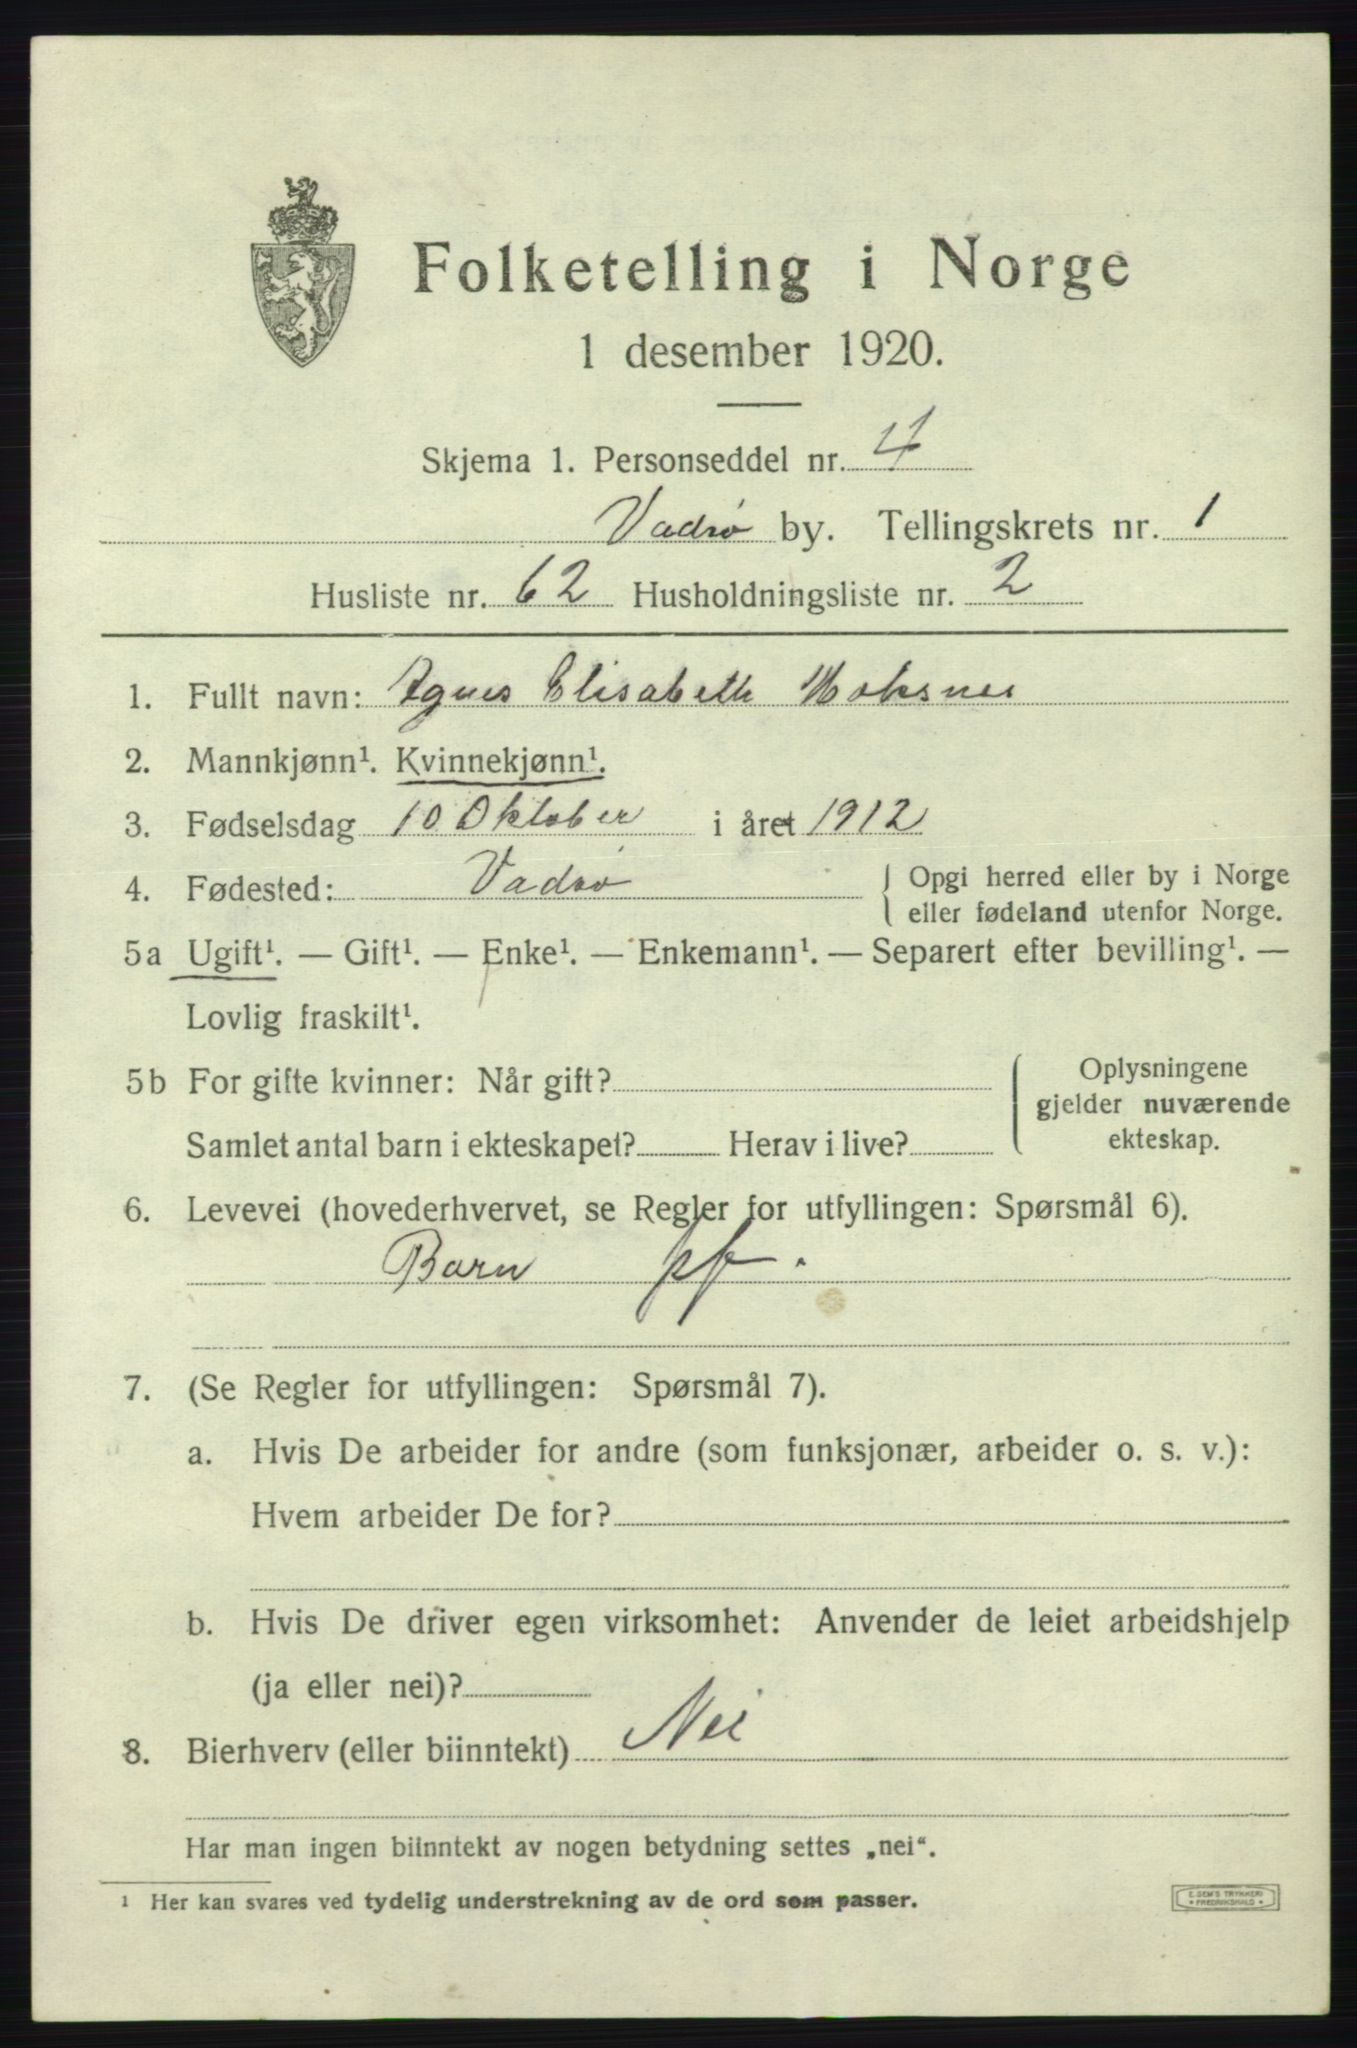 Folketelling i Norge
1 desember 1920.
Skjema 1. Personseddel nr. 4
Vadsø by. Tellingskrets nr. 1
Husliste nr. 62 Husholdningsliste nr. 2
1. Fullt navn: Agnes Elisabeth Moksnes
2. Mannkjønn¹. Kvinnekjønn¹.
3. Fødselsdag 10 Oktober i året 1912
4. Fødested: Vadsø { Opgi herred eller by i Norge
eller fødeland utenfor Norge.
5a Ugift¹. — Gift¹. — Enke¹. — Enkemann¹. — Separert efter bevilling¹. —
Lovlig fraskilt¹.
5b For gifte kvinner: Når gift? ( Oplysningene
gjelder nuværende
Samlet antal barn i ekteskapet? Herav i live? ekteskap.
6. Levevei (hovederhvervet, se Regler for utfyllingen: Spørsmål 6).
Barn pf.
7. (Se Regler for utfyllingen: Spørsmål 7).
a. Hvis De arbeider for andre (som funksjonær, arbeider o. s. v.):
Hvem arbeider De for?
b. Hvis De driver egen virksomhet: Anvender de leiet arbeidshjelp
(ja eller nei)?
8. Bierhverv (eller biinntekt) Nei
Har man ingen biinntekt av nogen betydning settes „nei“.
1 Her kan svares ved tydelig understrekning av de ord som passer.
E. SEM'S TRYKKERI
• FREDRIKSHALD •